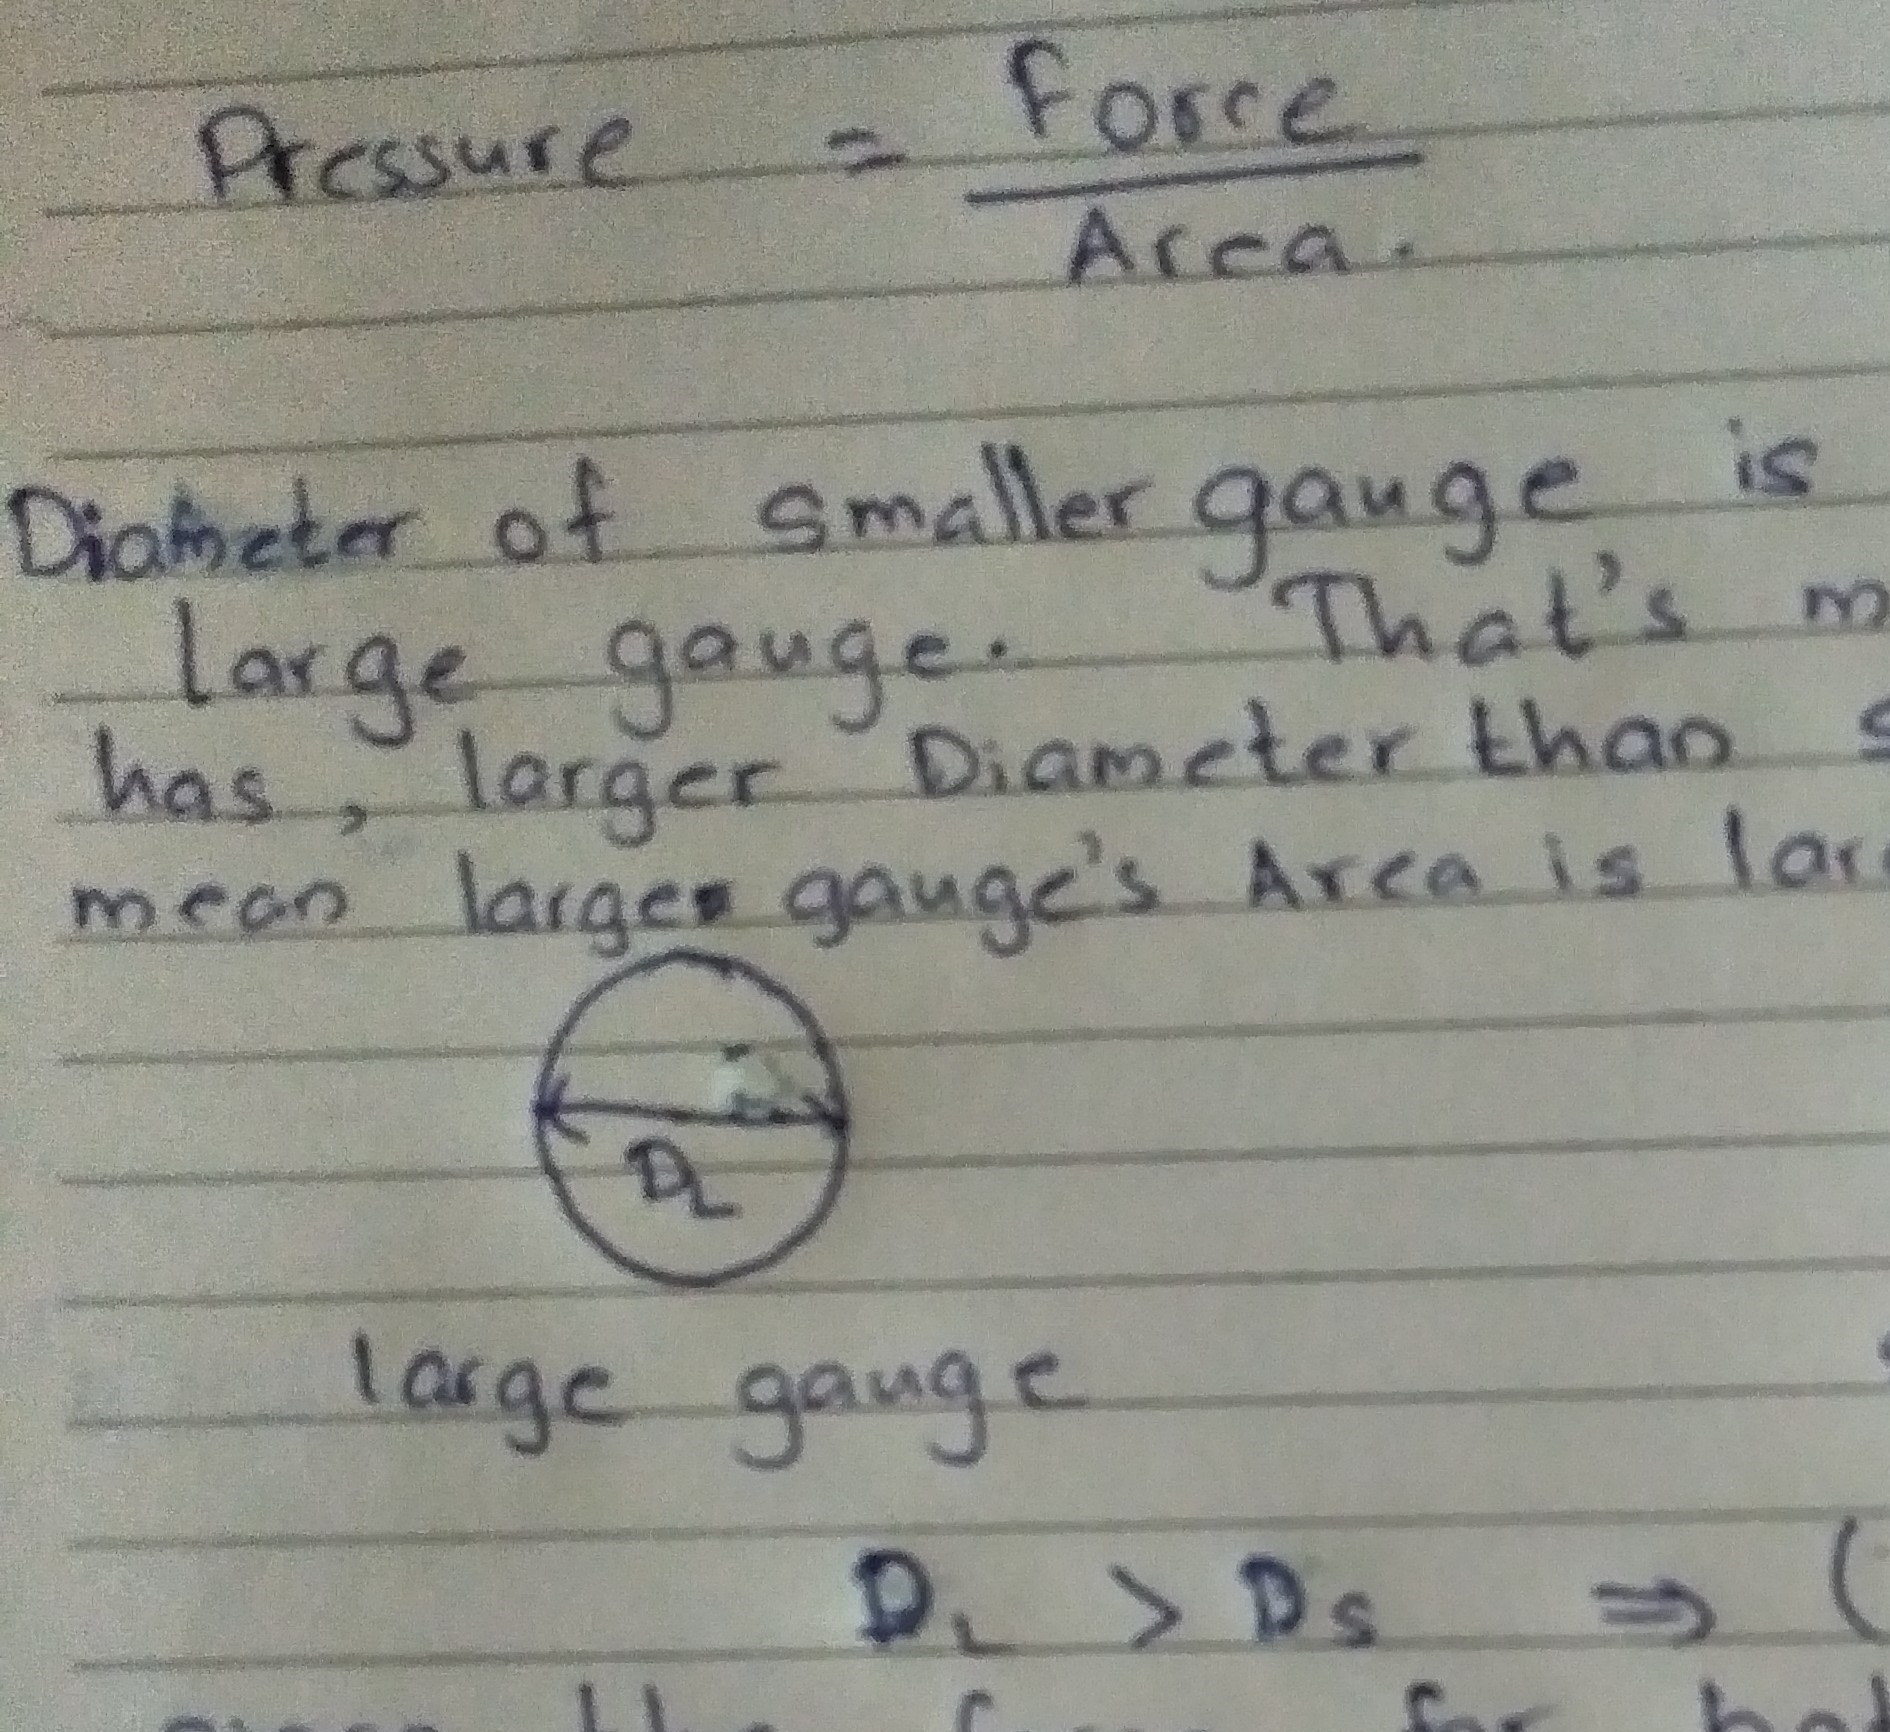 Pressure = Force
Area.
Diameter of smaller gauge is
large gauge. That's
has, larger Diameter than
mean large gauge's Area is
D_L
large gauge
D_L > D_S ⇒ (